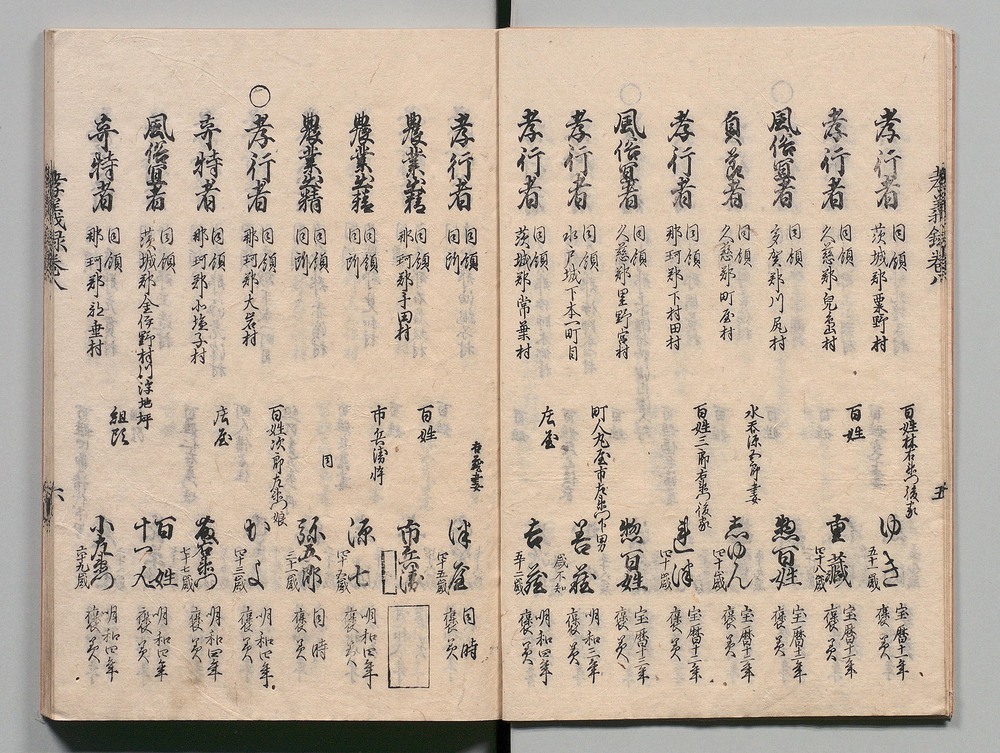 孝義録巻八
五
孝行者 同領 茨城郡粟野村 百姓林右衛門後家 ゆき 五十一歳 宝暦十一年 褒美
孝行者 同領 久慈郡児島村 百姓 重蔵 四十八歳 宝暦十二年 褒美
○風俗宜者 同領 多賀郡川尻村 惣百姓 宝暦十二年 褒美
貞節者 同領 久慈郡町屋村 水呑源五郎妻 志ゆん 四十歳 宝暦十二年 褒美
孝行者 同領 那珂郡下村田村 百姓三郎右衛門後家 四十歳 宝暦十二年 褒美
風俗宜者 同領 久慈郡里野宮村 惣百姓 宝暦十三年 褒美
孝行者 同領 水戸城下本一町目 町人丸屋市左衛門下男 善蔵 歳不知 明和三年 褒美
孝行者 同領 茨城郡常葉村 庄屋 吉蔵 五十二歳 明和四年 褒美
孝行者 同領 同所 吉蔵妻 四十五歳 同時 褒美
農業出精 同領 那珂郡手田村 百姓 市兵衛
農業出精 同領 同所 市兵衛悴 源七 明和四年 褒美
農業出精 同領 同所 同 弥五郎 三十歳 同時 褒美
○孝行者 同領 那珂郡大岩村 百姓次郎左衛門娘 かよ 四十三歳 明和四年 褒美
奇特者 同領 那珂郡小塩子村 庄屋 七十七歳 明和四年 褒美
風俗宜者 同領 茨城郡金伊野村門沢地坪 百姓 十一人 明和四年 褒美
奇特者 同領 那珂郡 組頭 小左衛門 六十九歳 明和四年 褒美
孝義録巻八
六